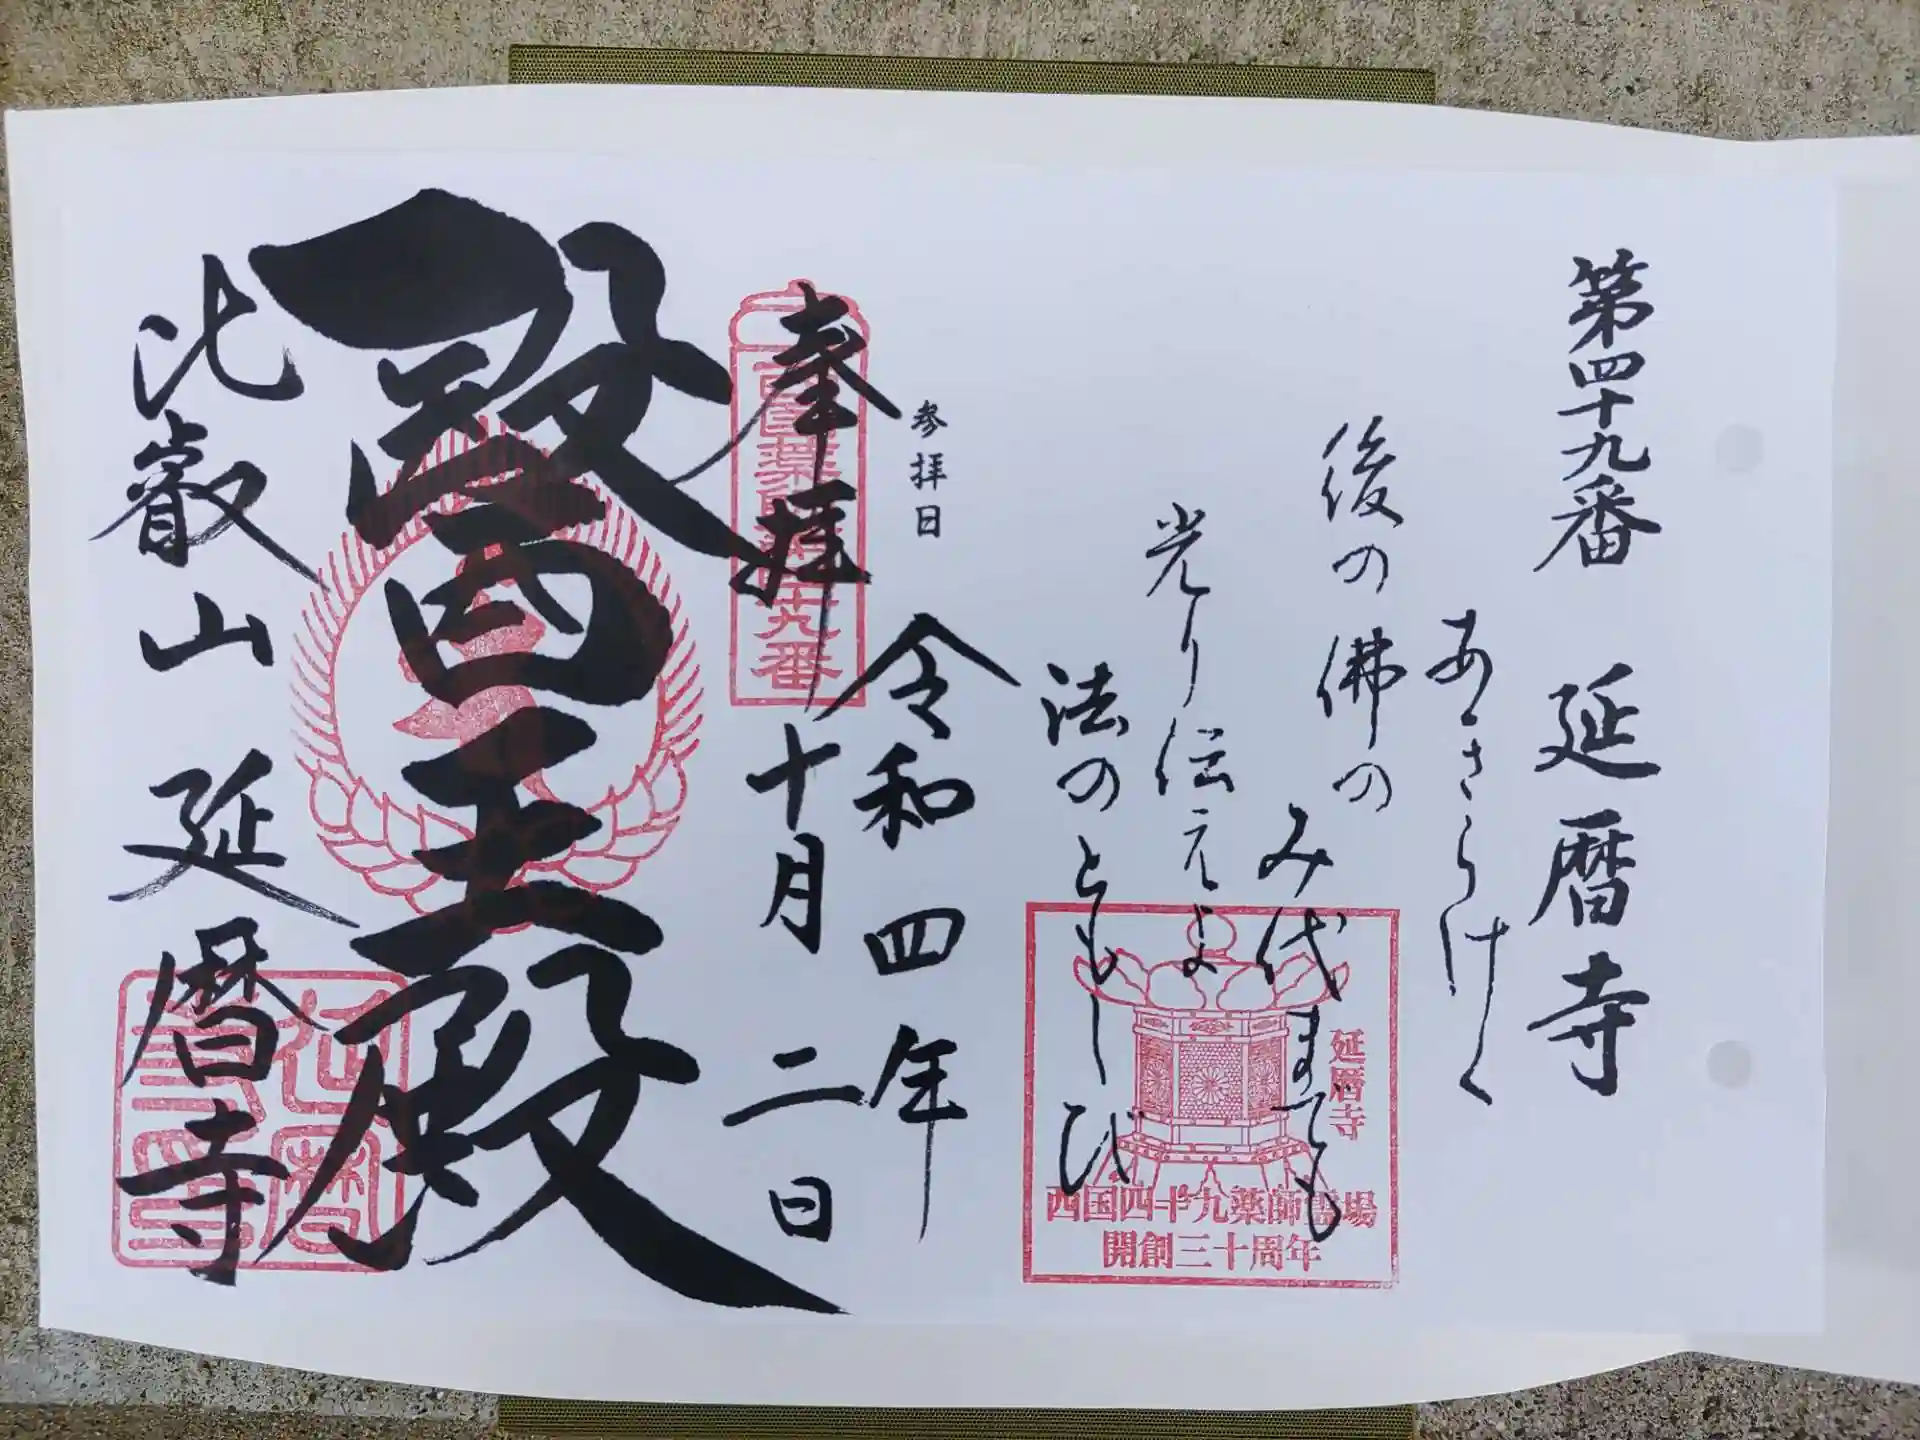 第四十九番 延暦寺
あきらけく
後の佛の
み代までも
光り伝えよ
法のともしび
延暦寺
西国四十九薬師霊場
開創三十周年
参拝日
令和四年
十月二日
奉拝
西国薬師第四十九番
醫王殿
比叡山 延暦寺